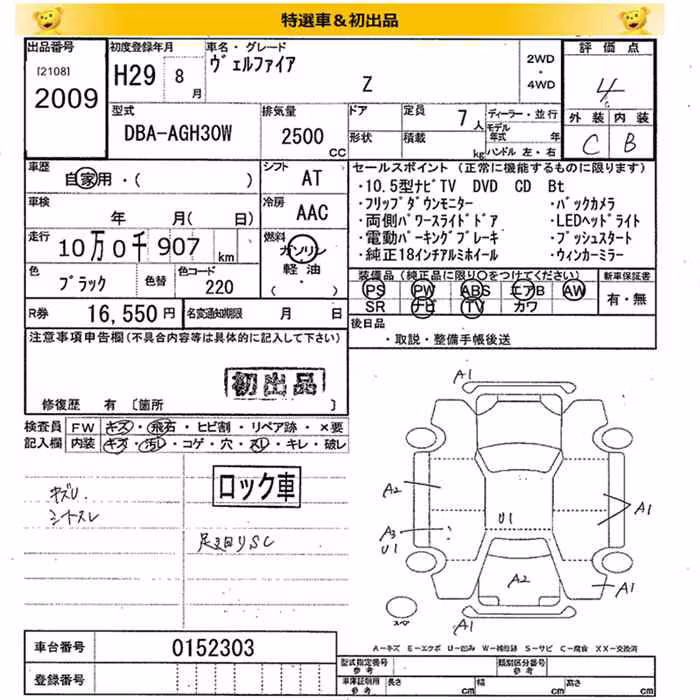 特選車＆初出品
出品番号 初度登録年月 車名・グレード 評価点
[2108] H29 8月 ヴェルファイア 2WD・4WD 4
2009 Z 外装 内装
型式 排気量 ドア 定員 7人 ディーラー・並行 C B
DBA-AGH30W 2500cc 形状 積載 kg モデル年式 年
ハンドル 左・右
車歴 自家用・( ) シフト AT セールスポイント (正常に機能するものに限ります)
・10.5型ナビTV DVD CD Bt
車検 年 月( 日) 冷房 AAC ・フリップダウンモニター ・バックカメラ
・両側パワースライドドア ・LEDヘッドライト
走行 10万0千907km 燃料 ガソリン ・電動パーキングブレーキ ・プッシュスタート
軽油・( ) ・純正18インチアルミホイール ・ウィンカーミラー
色 ブラック 色替 色コード 220 装備品 (純正品に限り○をつけてください) 新車保証書
PS PW ABS エアB AW 有・無
R券 16,550円 名変通知期限 月 日 SR ナビ TV カワ
注意事項申告欄(不具合内容等は具体的に記入して下さい) 後日品
・取説・整備手帳後送
初出品
修復歴 有 〔箇所 〕
検査員 FW キズ・飛石・ヒビ割・リペア跡・×要
記入欄 内装 キズ・汚レ・コゲ・穴・スレ・キレ・破レ
ロック車
キズU
シートスレ
足廻りSC
A1
A2
A1
A3
U1
U1
A2
A1
A1
スペア
A-キズ E-エクボ U-凹み W-補修跡 S-サビ C-腐食 XX-交換済
車台番号 0152303
型式指定番号 参考 類別区分番号 参考
登録番号 車庫証明用 参考 長さ cm 幅 cm 高さ cm